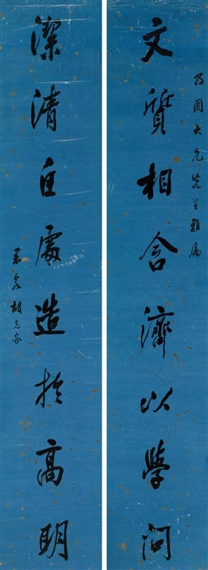 乃周大兄先生雅屬
文質相含濟以學問
潔清自處造於高明
胡